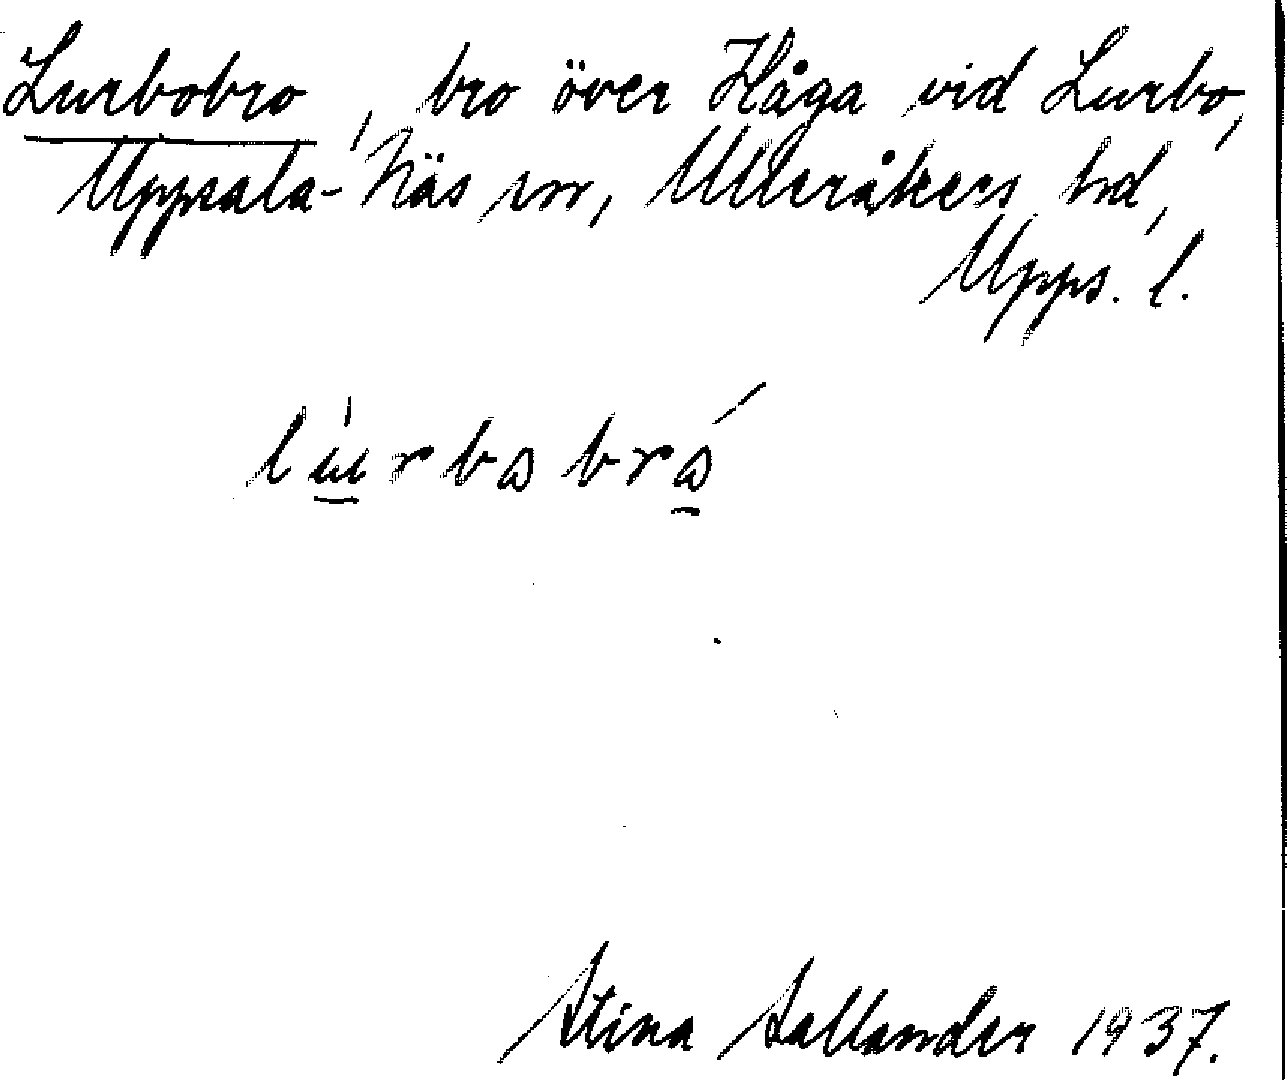 Lurbobro, bro över Håga vid Lurbo,
Uppsala-Näs sn, Ulleråkers hd,
Upps. l.
Stina Sallander 1937.